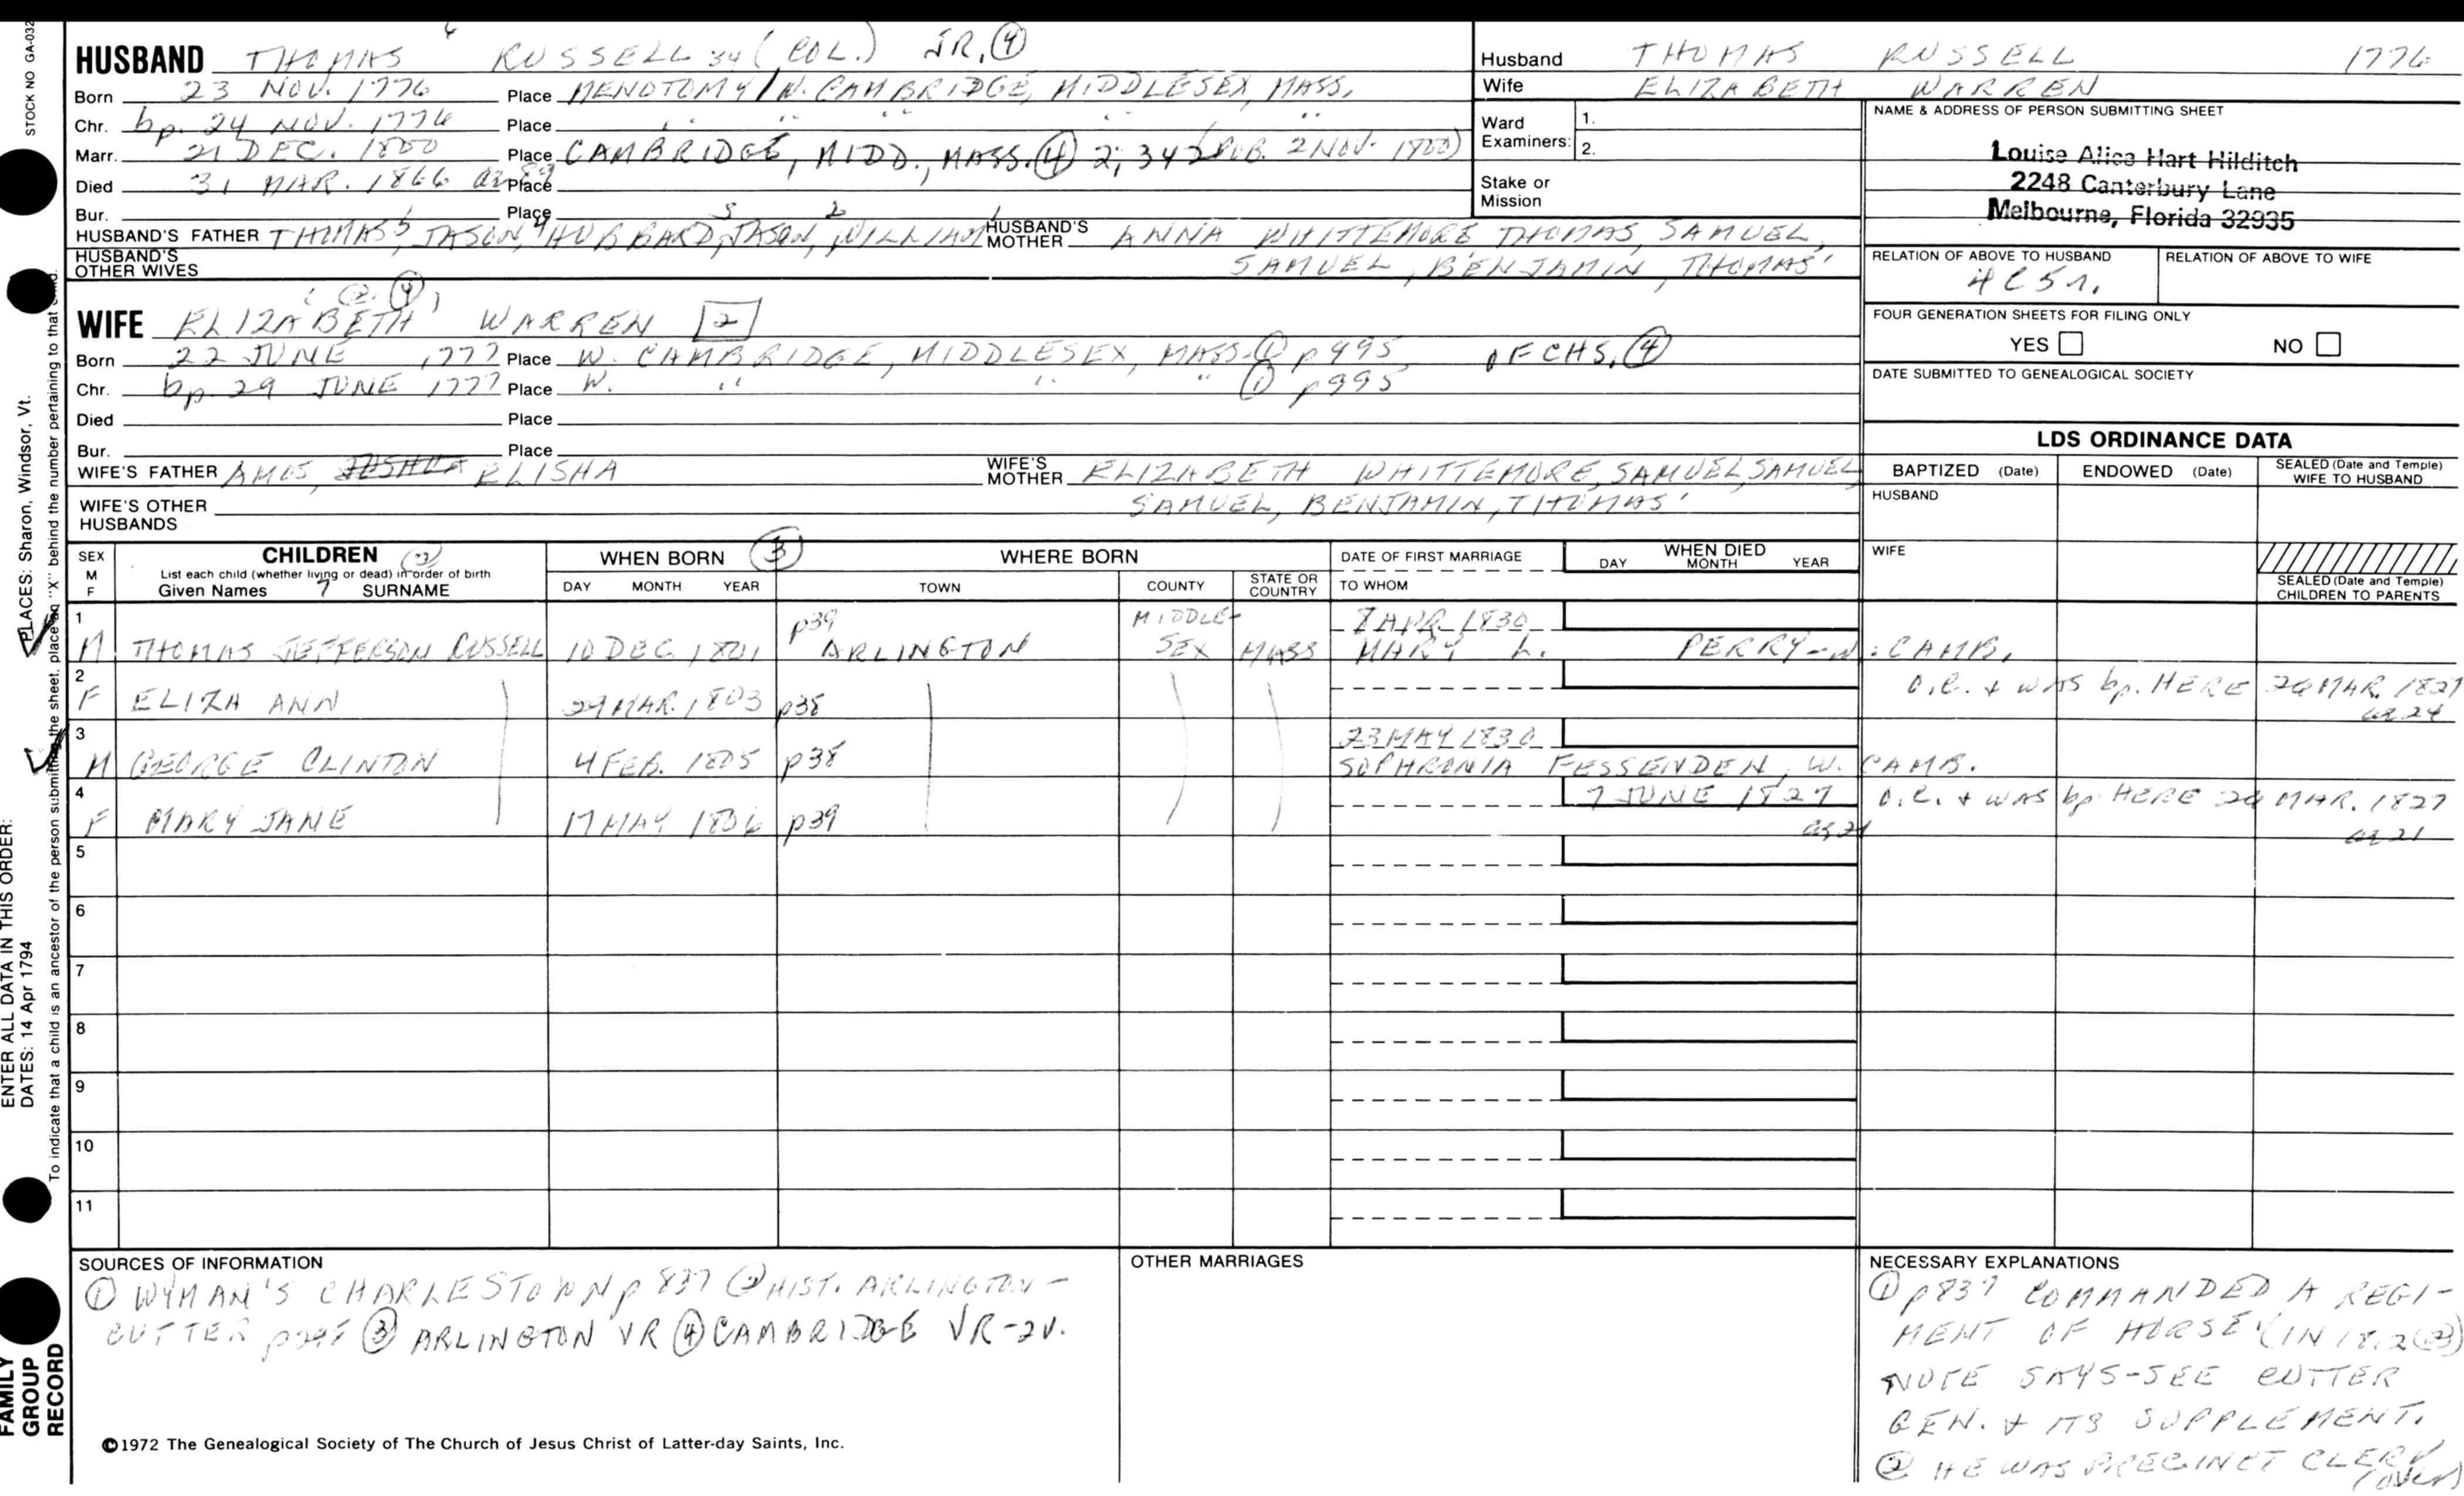 STOCK NO GA-032
HUSBAND THOMAS 6 RUSSELL 34 (COL.) JR. (4)
Born 23 NOV. 1776 Place MENOTOMY/W. CAMBRIDGE, MIDDLESEX, MASS.
Chr. bp. 24 NOV. 1776 Place " " " " "
Marr. 21 DEC. 1800 Place CAMBRIDGE, MIDD., MASS. (4) 2; 342 (PUB. 2 NOV. 1800)
Died 31 MAR. 1866 ae 89 Place
Bur. Place
HUSBAND'S FATHER THOMAS 5, JASON 4, HUBBARD 3, JASON 2, WILLIAM 1 HUSBAND'S MOTHER ANNA WHITTEMORE THOMAS, SAMUEL,
SAMUEL, BENJAMIN, THOMAS'
HUSBAND'S OTHER WIVES
Husband THOMAS RUSSELL 1776
Wife ELIZABETH WARREN
Ward Examiners: 1.
2.
Stake or Mission
NAME & ADDRESS OF PERSON SUBMITTING SHEET
Louise Alice Hart Hilditch
2248 Canterbury Lane
Melbourne, Florida 32935
RELATION OF ABOVE TO HUSBAND
4C5r.
RELATION OF ABOVE TO WIFE
FOUR GENERATION SHEETS FOR FILING ONLY
YES NO
DATE SUBMITTED TO GENEALOGICAL SOCIETY
(2. (4))
WIFE ELIZABETH WARREN 2
Born 22 JUNE 1777 Place W. CAMBRIDGE, MIDDLESEX, MASS. (1) p995 OF CHS. (4)
Chr. bp. 29 JUNE 1777 Place W. " " " (1) p995
Died Place
Bur. Place
WIFE'S FATHER AMOS, JOSHUA ELISHA
WIFE'S MOTHER ELIZABETH WHITTEMORE, SAMUEL, SAMUEL
SAMUEL, BENJAMIN, THOMAS'
WIFE'S OTHER HUSBANDS
LDS ORDINANCE DATA
BAPTIZED (Date) ENDOWED (Date) SEALED (Date and Temple) WIFE TO HUSBAND
HUSBAND
WIFE
SEALED (Date and Temple) CHILDREN TO PARENTS
SEX M F
CHILDREN (2)
List each child (whether living or dead) in order of birth
Given Names SURNAME
WHEN BORN (3)
DAY MONTH YEAR
WHERE BORN
TOWN COUNTY STATE OR COUNTRY
DATE OF FIRST MARRIAGE
TO WHOM
WHEN DIED
DAY MONTH YEAR
1 M THOMAS JEFFERSON RUSSELL 10 DEC. 1801 p39 ARLINGTON MIDDLESEX MASS 8 APR. 1830
MARY L. PERRY-W. CAMB.
2 F ELIZA ANN 29 MAR. 1803 p38 O.C. + WAS bp. HERE 26 MAR. 1827
ae 24
3 M GEORGE CLINTON 4 FEB. 1805 p38 23 MAY 1830
SOPHRONIA FESSENDEN, W. CAMB.
4 F MARY JANE 17 MAY 1806 p39 7 JUNE 1827 ae 21 O.C. + WAS bp HERE 26 MAR. 1827
ae 21
5
6
7
8
9
10
11
SOURCES OF INFORMATION
(1) WYMAN'S CHARLESTOWN p 837 (2) HIST. ARLINGTON-
CUTTER (3) ARLINGTON VR (4) CAMBRIDGE VR-2V.
OTHER MARRIAGES
NECESSARY EXPLANATIONS
(1) p837 COMMANDED A REGI-
MENT OF HORSE (IN 1812 (2))
NOTE SAYS-SEE CUTTER
GEN. + ITS SUPPLEMENT.
(2) HE WAS PRECINCT CLERK
(OVER)
©1972 The Genealogical Society of The Church of Jesus Christ of Latter-day Saints, Inc.
FAMILY GROUP RECORD
ENTER ALL DATA IN THIS ORDER:
DATES: 14 Apr 1794
PLACES: Sharon, Windsor, Vt.
To indicate that a child is an ancestor of the person submitting the sheet, place an "X" behind the number pertaining to that child.